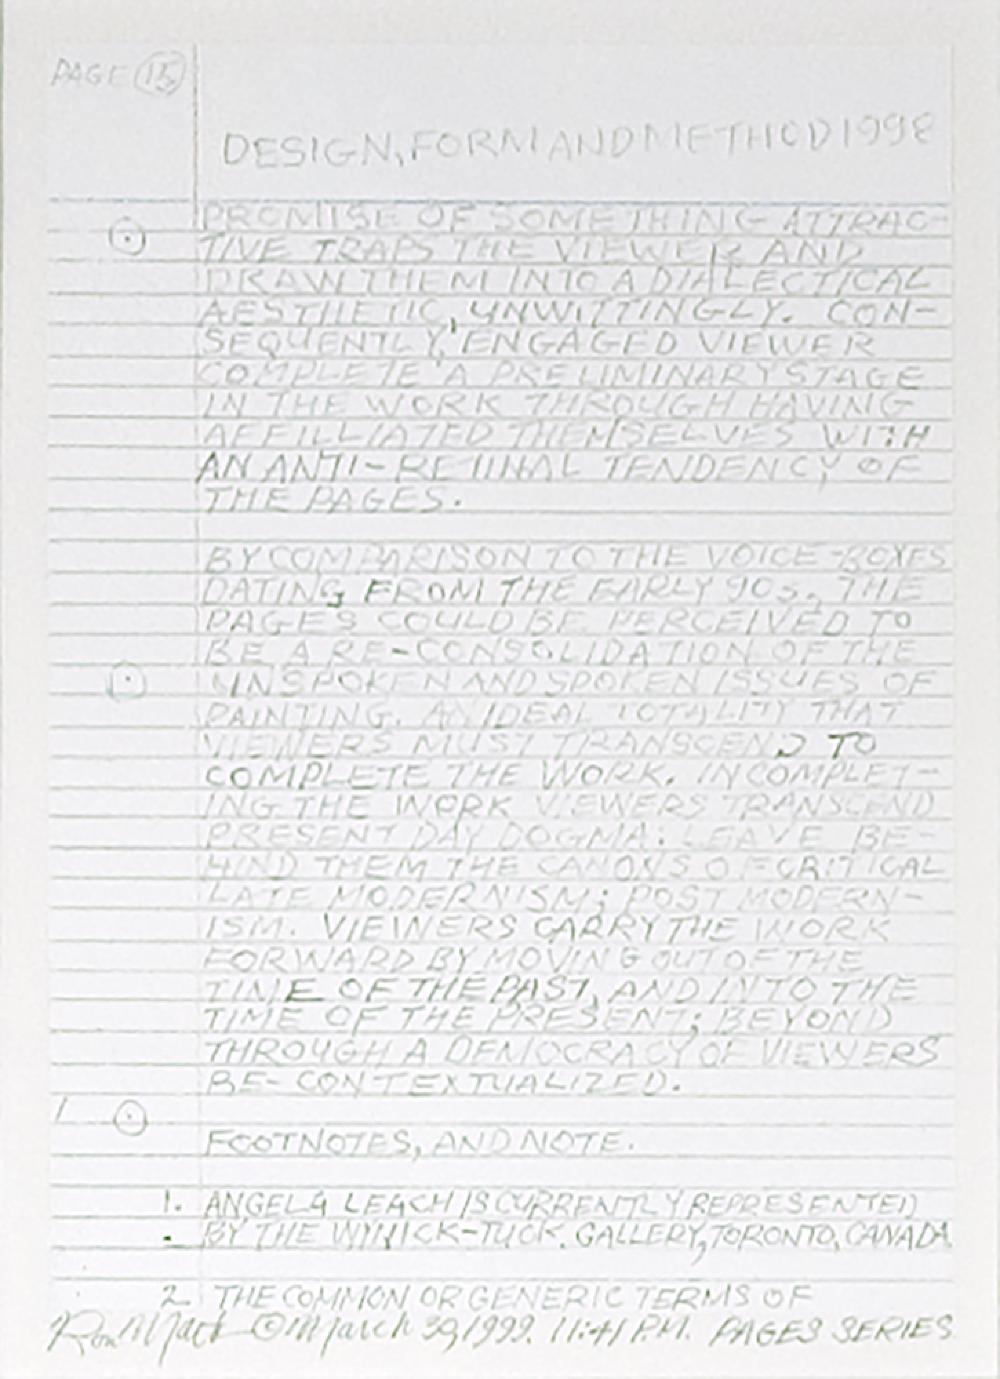 PAGE 15
DESIGN, FORM AND METHOD 1998
PROMISE OF SOMETHING ATTRAC-
TIVE TRAPS THE VIEWER AND
DRAW THEM INTO A DIALECTICAL
AESTHETIC, UNWITTINGLY. CON-
SEQUENTLY, ENGAGED VIEWER
COMPLETE A PRELIMINARY STAGE
IN THE WORK THROUGH HAVING
AFFILLIATED THEMSELVES WITH
AN ANTI-RETINAL TENDENCY OF
THE PAGES.
BY COMPARISON TO THE VOICE-BOXES
DATING FROM THE EARLY 90s, THE
PAGES COULD BE PERCEIVED TO
BE A RE-CONSOLIDATION OF THE
UNSPOKEN AND SPOKEN ISSUES OF
PAINTING. AN IDEAL TOTALITY THAT
VIEWERS MUST TRANSCEND TO
COMPLETE THE WORK. IN COMPLET-
ING THE WORK VIEWERS TRANSCEND
PRESENT DAY DOGMA: LEAVE BE-
HIND THEM THE CANONS OF CRITICAL
LATE MODERNISM; POST MODERN-
ISM. VIEWERS CARRY THE WORK
FORWARD BY MOVING OUT OF THE
TIME OF THE PAST, AND INTO THE
TIME OF THE PRESENT; BEYOND
THROUGH A DEMOCRACY OF VIEWERS
BE-CONTEXTUALIZED.
FOOTNOTES, AND NOTE.
1. ANGELA LEACH IS CURRENTLY REPRESENTED
BY THE WYNICK-TUCK. GALLERY, TORONTO, CANADA.
2. THE COMMON OR GENERIC TERMS OF
© March 30, 1999. 11:41 P.M. PAGES SERIES